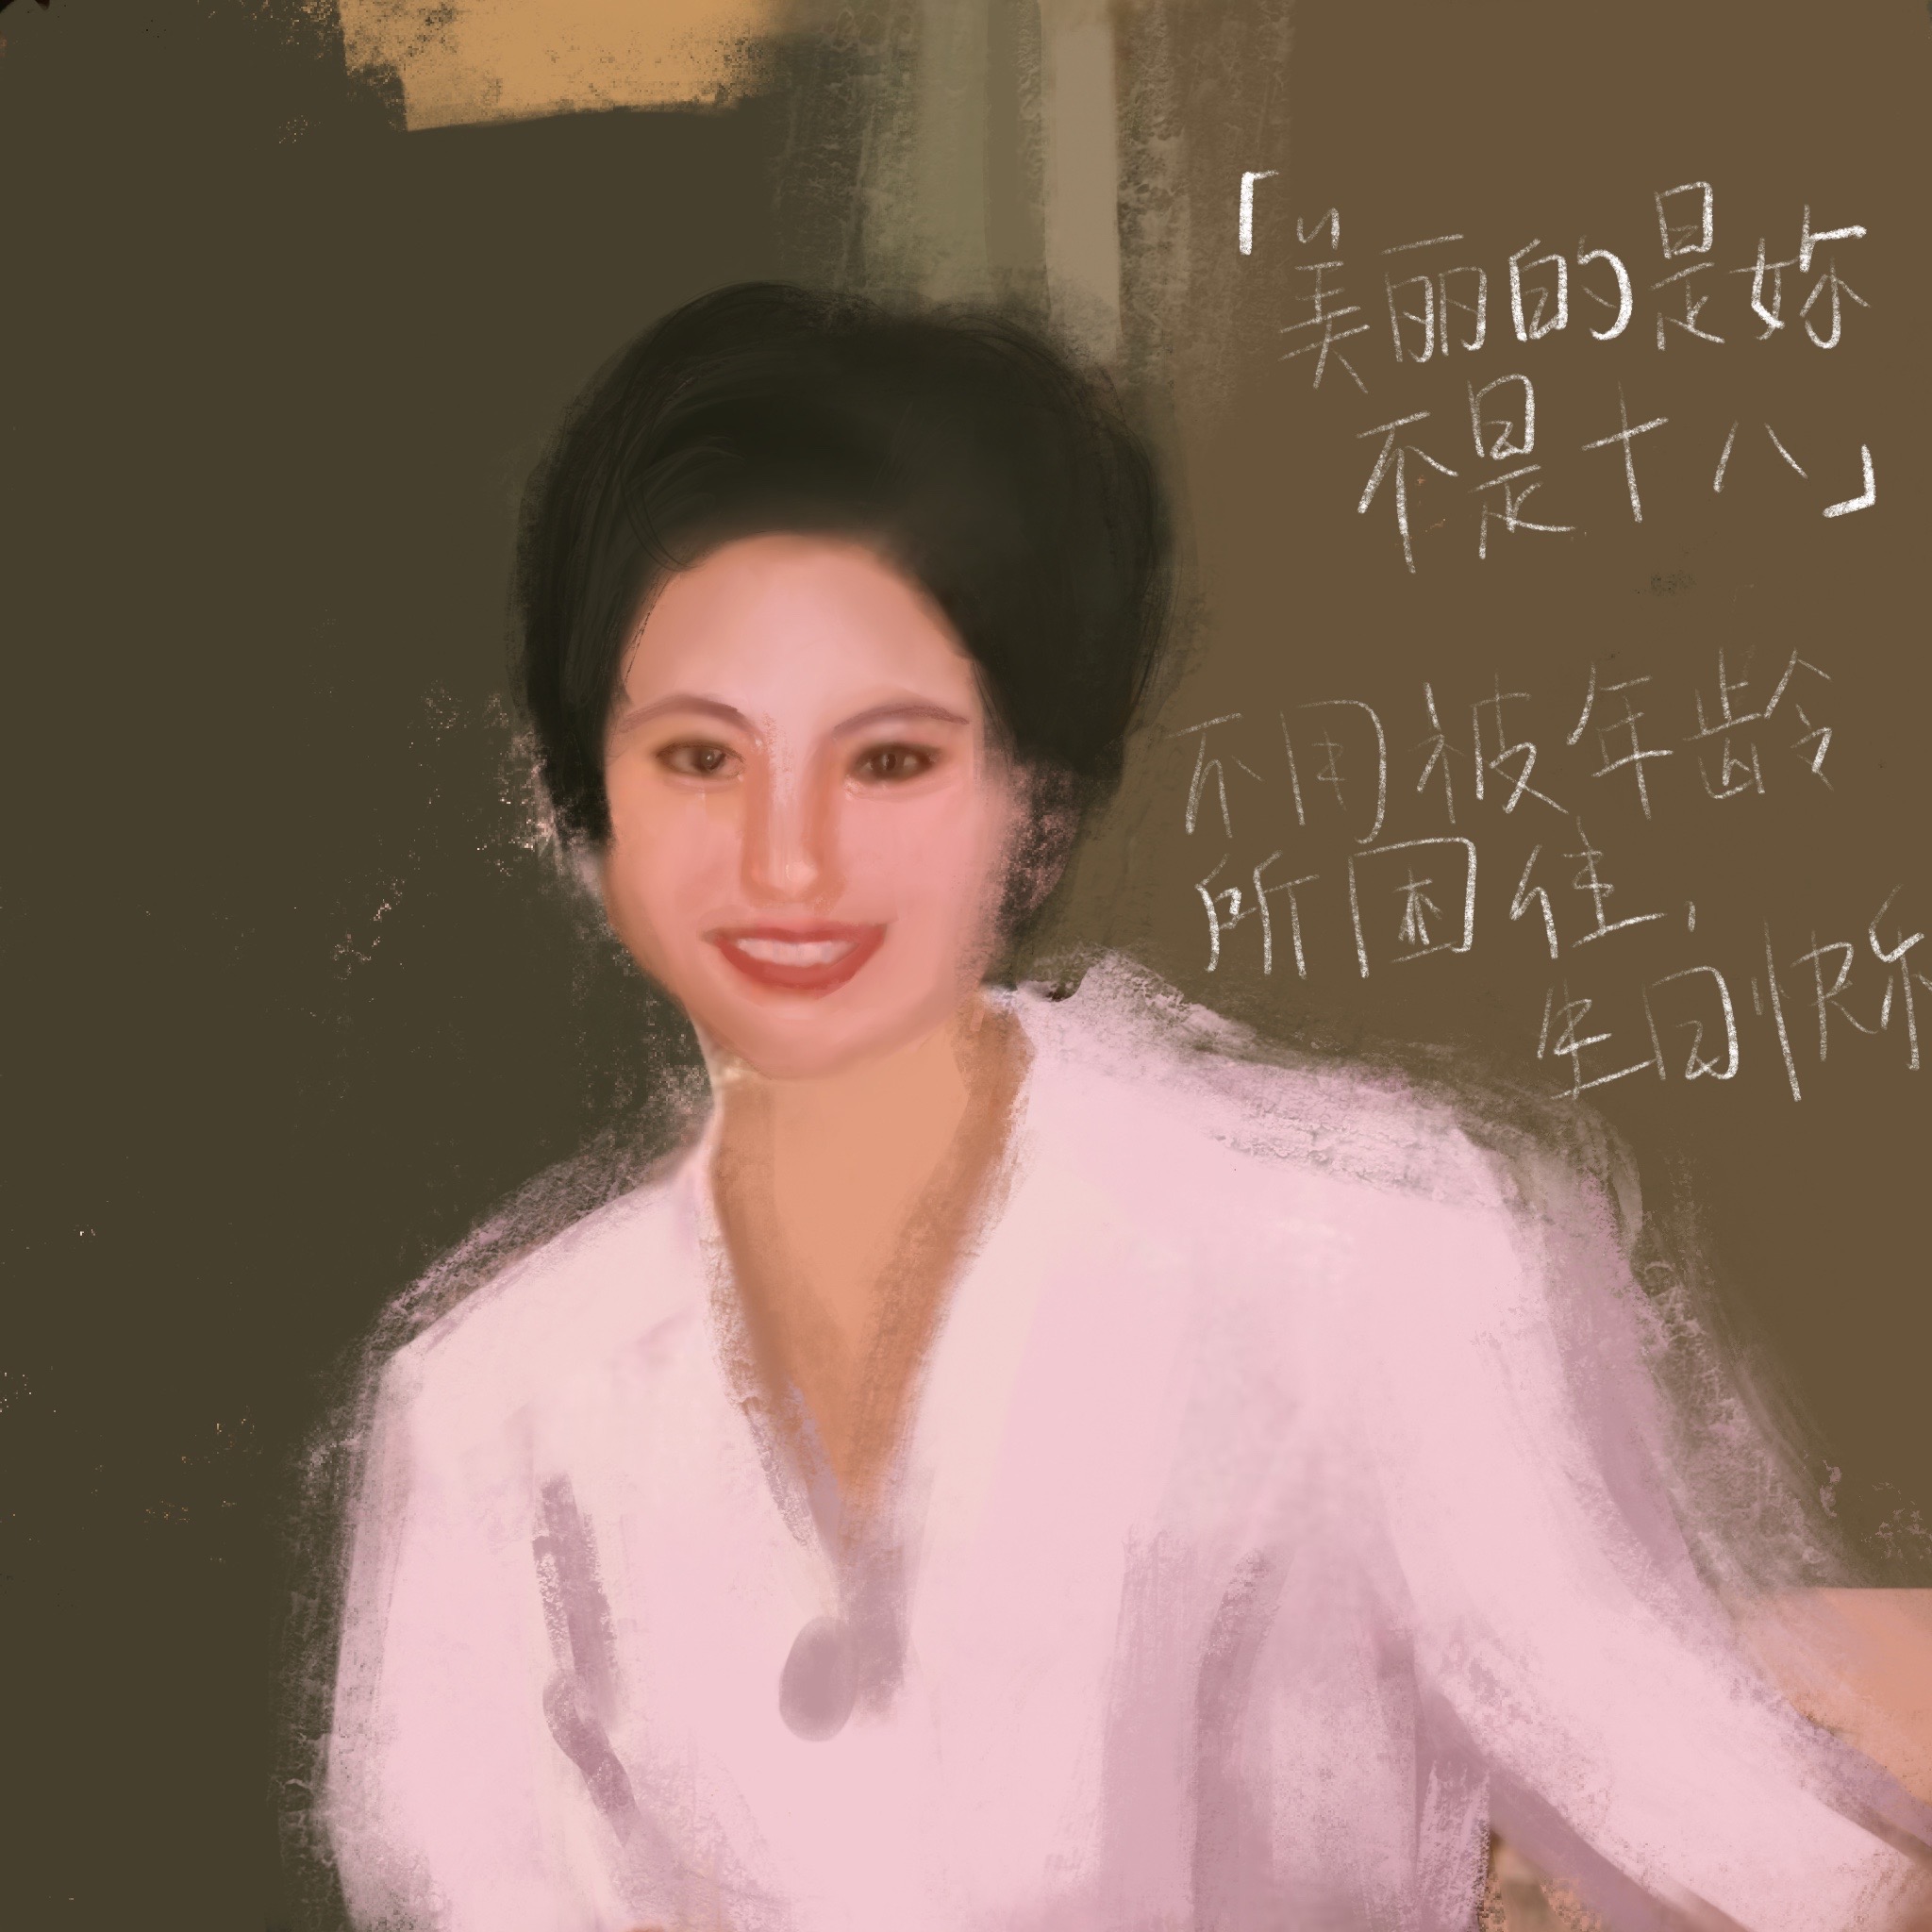 「美丽的是妳
不是十八」
不用被年龄
所困住,
生日快乐